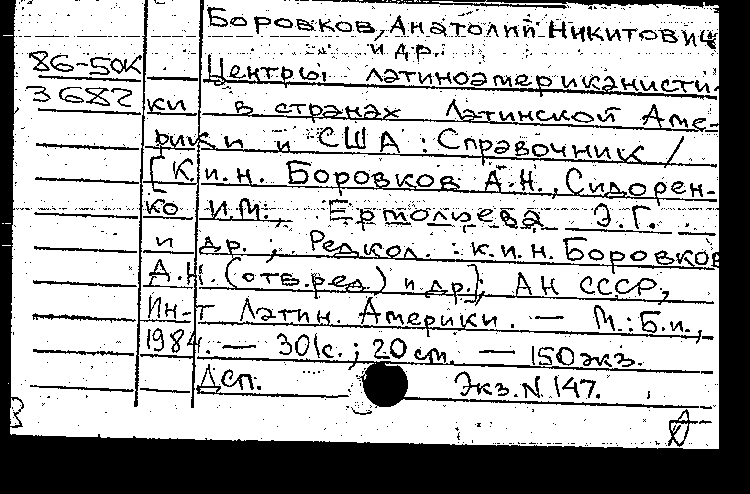 Боровков, Анатолий Никитович
и др.
86-50К Центры латиноамериканисти-
3682 ки в странах Латинской Аме-
рики и США : Справочник /
[К.и.н. Боровков А.Н., Сидорен-
ко И.М., Ермолаева Э.Г.
и др. ; Редкол. : к.и.н. Боровков
А.Н. (отв.ред.) и др.]; АН СССР,
Ин-т Латин. Америки. — М.: Б.и.,
1984. — 301с. ; 20 см. — 150 экз.
Дсп. Экз. N 147.